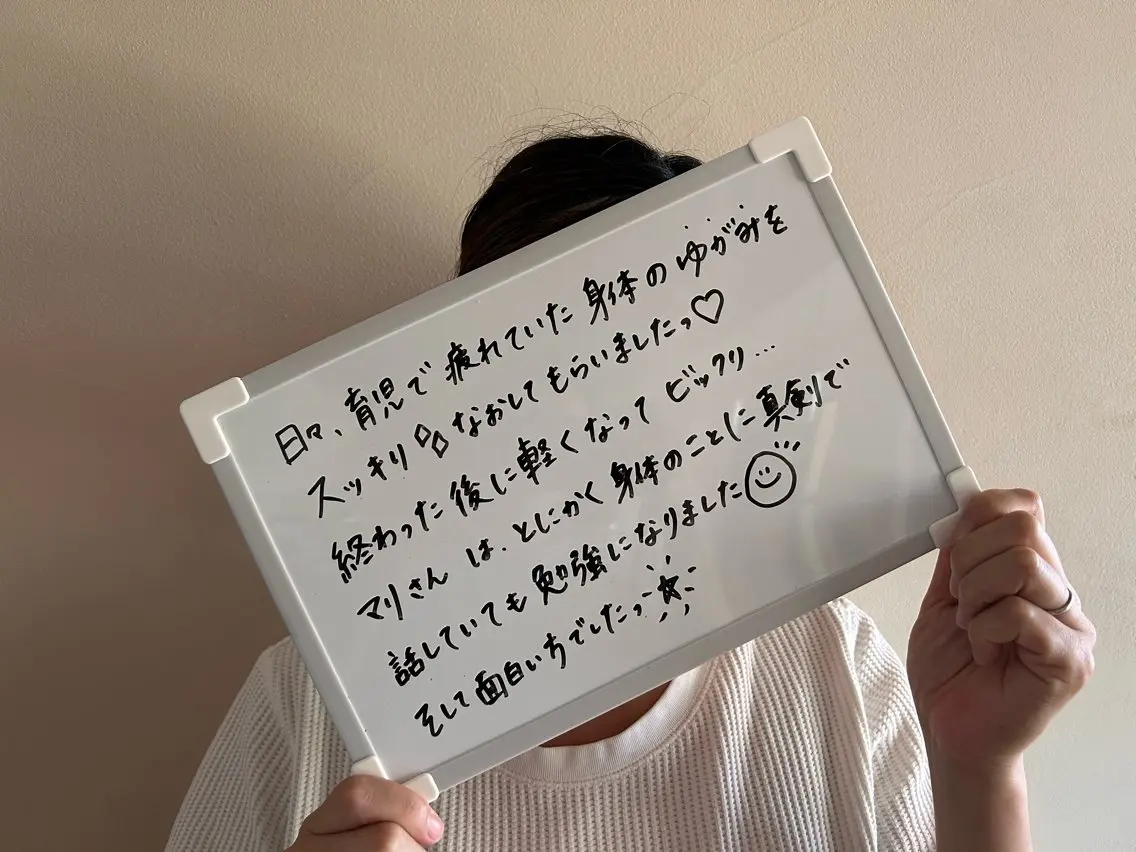 日々、育児で疲れていた身体のゆがみを
スッキリなおしてもらいましたっ♡
終わった後に軽くなってビックリ…
マリさんは、とにかく身体のことに真剣で
話していても勉強になりました
そして面白いちでしたっ☆